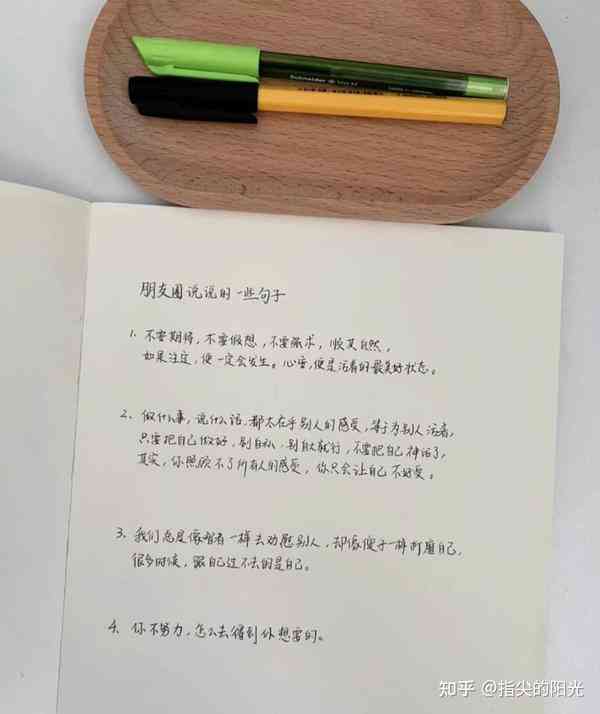 Schneider
朋友圈说说的一些句子
1. 不要期待,不要假想,不要强求,顺其自然,
如果注定,便一定会发生。心安,便是活着的最美好状态。
2. 做什么事,说什么话,都太在乎别人的感受,等于为别人活着,
只要把自己做好,别自私,别自大就行,不要把自己神话了,
其实,你照顾不了所有人的感受,你只会让自己不好受。
3. 我们总是像智者一样去劝慰别人,却像傻子一样折磨自己,
很多时候,跟自己过不去的是自己。
4. 你不努力,怎么去得到你想要的。
知乎 @指尖的阳光